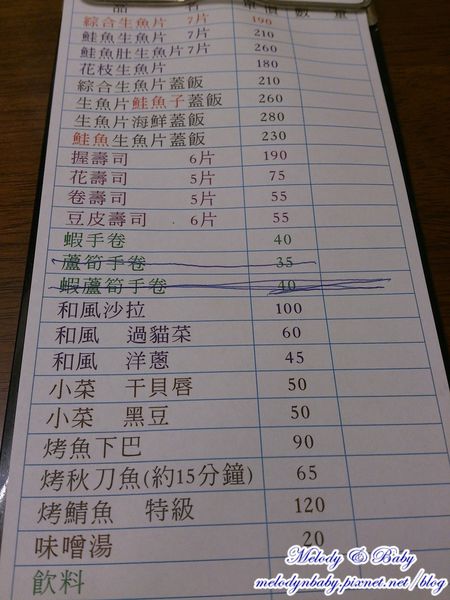 品 名 單價 數 量
綜合生魚片 7片 190
鮭魚生魚片 7片 210
鮭魚肚生魚片7片 260
花枝生魚片 180
綜合生魚片蓋飯 210
生魚片鮭魚子蓋飯 260
生魚片海鮮蓋飯 280
鮭魚生魚片蓋飯 230
握壽司 6片 190
花壽司 5片 75
卷壽司 5片 55
豆皮壽司 6片 55
蝦手卷 40
蘆筍手卷 35
蝦蘆筍手卷 40
和風沙拉 100
和風 過貓菜 60
和風 洋蔥 45
小菜 干貝唇 50
小菜 黑豆 50
烤魚下巴 90
烤秋刀魚(約15分鐘) 65
烤鯖魚 特級 120
味噌湯 20
飲料
Melody & Baby
melodynbaby.pixnet.net/blog